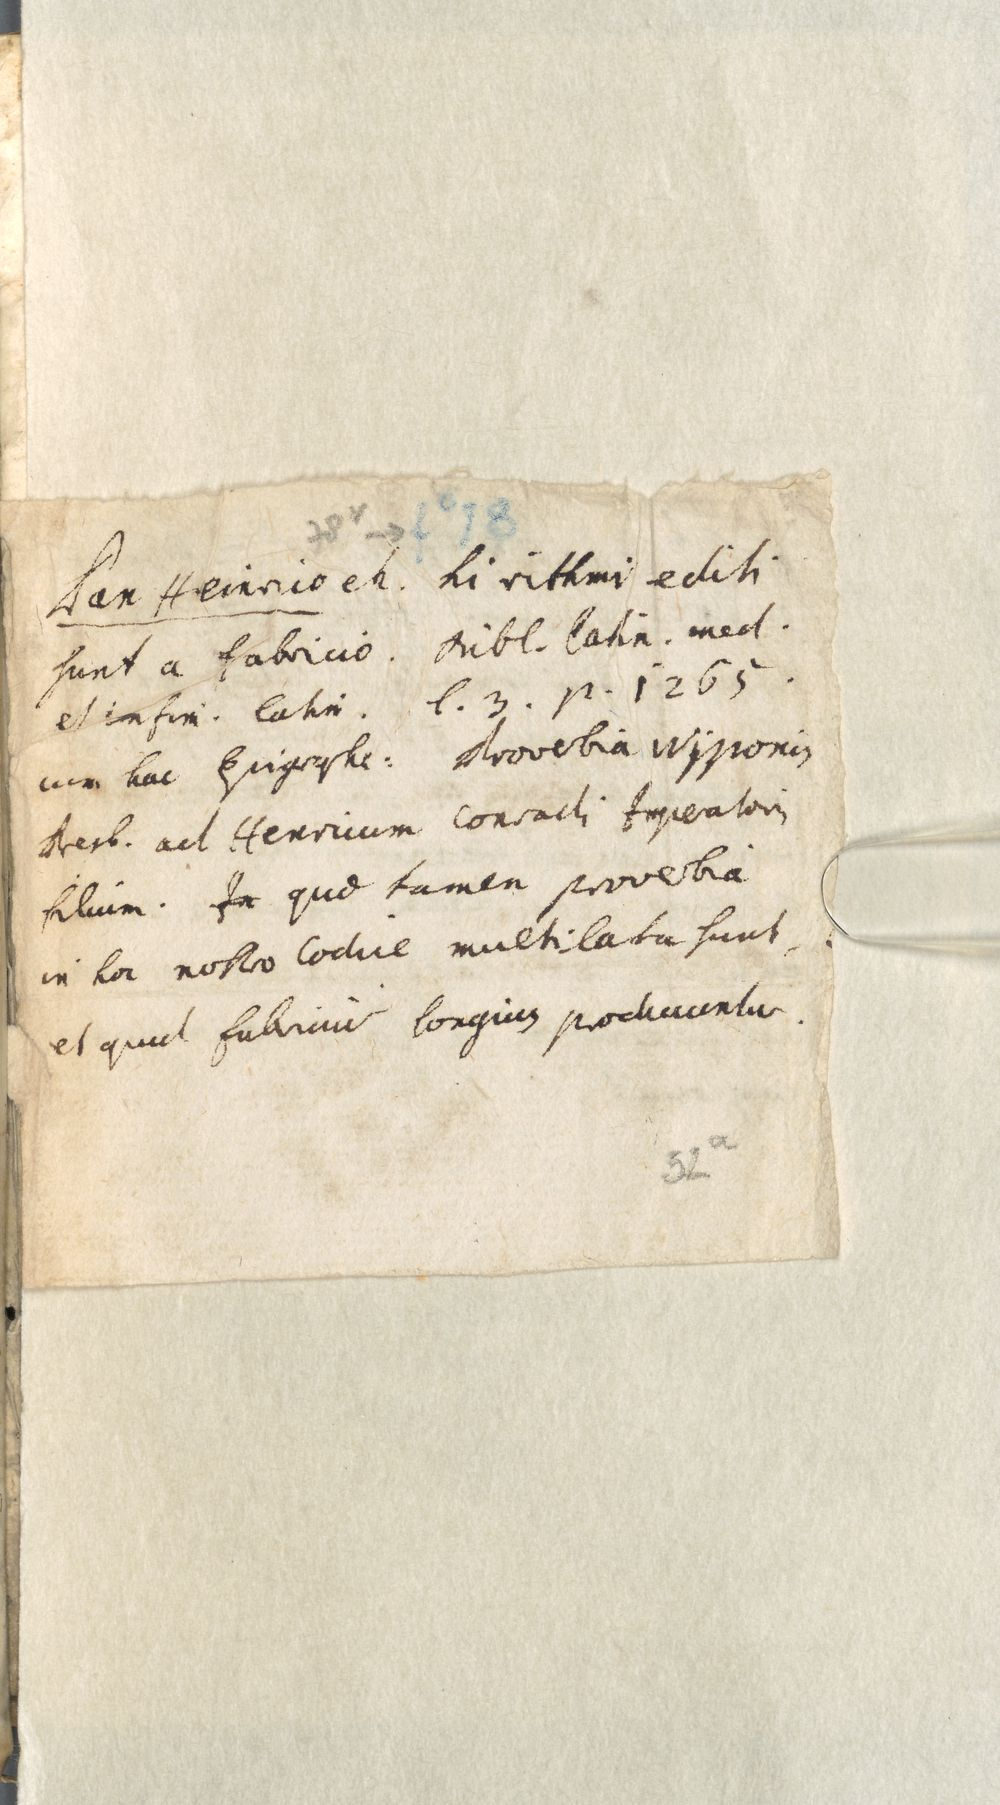 78v → f° 78
Dan Heinrico eh. hi rithmi editi
sunt a Fabricio. Bibl. latin. med.
et infim. latin. l. 3. p. 1265.
cum hac Epigraphe: Proverbia Wipponis
Presb. ad Henricum Conradi Imperatoris
filium. quae tamen proverbia
in hoc nostro Codice multilata sunt,
et apud Fabricium longius producuntur.
52a